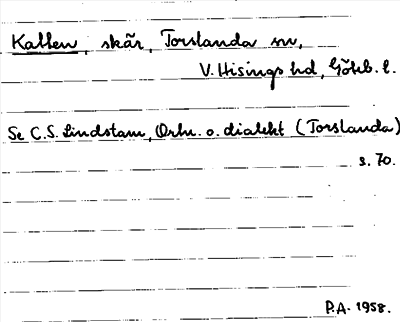 Kallen, skär, Torslanda sn,
V. Hisings hd, Göteb. l.
Se C.S. Lindstam, Ortn. o. dialekt (Torslanda)
s. 70.
P.A. 1958.